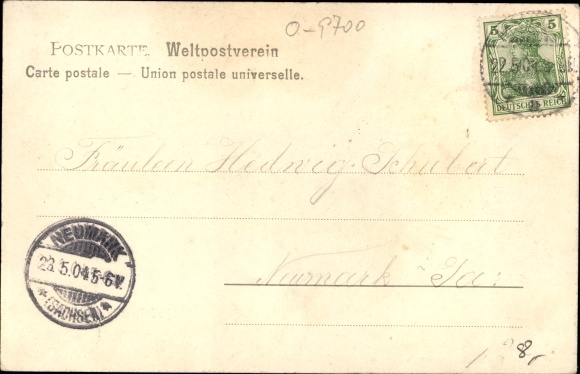 O-9700
POSTKARTE. Weltpostverein
Carte postale — Union postale universelle.
5 5
22.5.04
DEUTSCHES REICH
Fräulein Hedwig Schubert
NEUMARK
23.5.04 5-6V.
*(SACHSEN)*
Neumark Sa:
8,